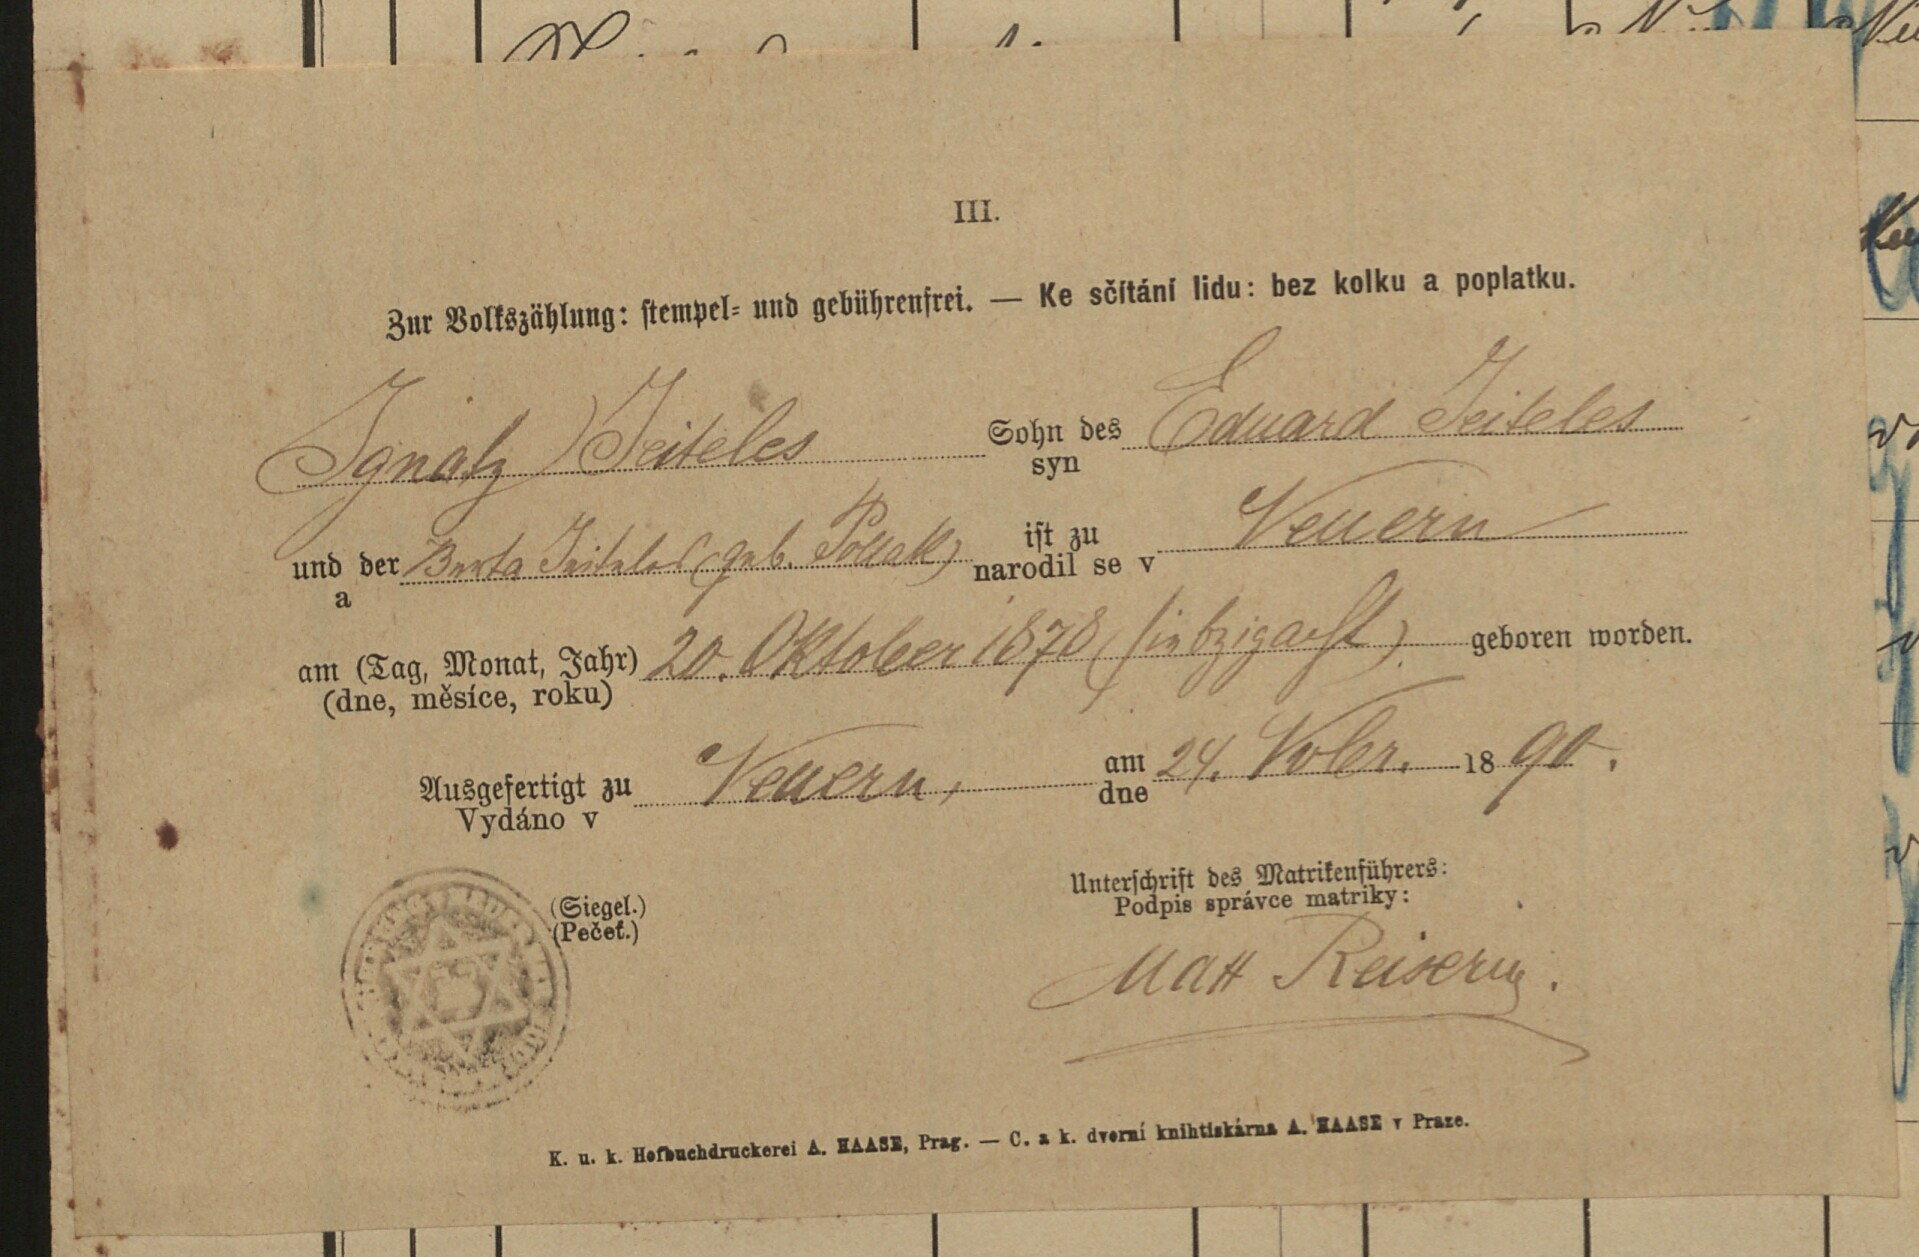 III.
Zur Volkszählung: stempel- und gebührenfrei. — Ke sčítání lidu: bez kolku a poplatku.
Ignatz Jeiteles Sohn des Eduard Jeiteles
syn
und der Berta Jeiteles (geb. Pollak) ist zu Neuern
a narodil se v
am (Tag, Monat, Jahr) 20. Oktober 1878 (siebzigacht) geboren worden.
(dne, měsíce, roku)
Ausgefertigt zu Neuern, am 24. Novbr. 1890.
Vydáno v dne
(Siegel.) Unterschrift des Matrikenführers:
(Pečeť.) Podpis správce matriky:
K. u. k. Hofbuchdruckerei A. HAASE, Prag. — C. a k. dvorní knihtiskárna A. HAASE v Praze.